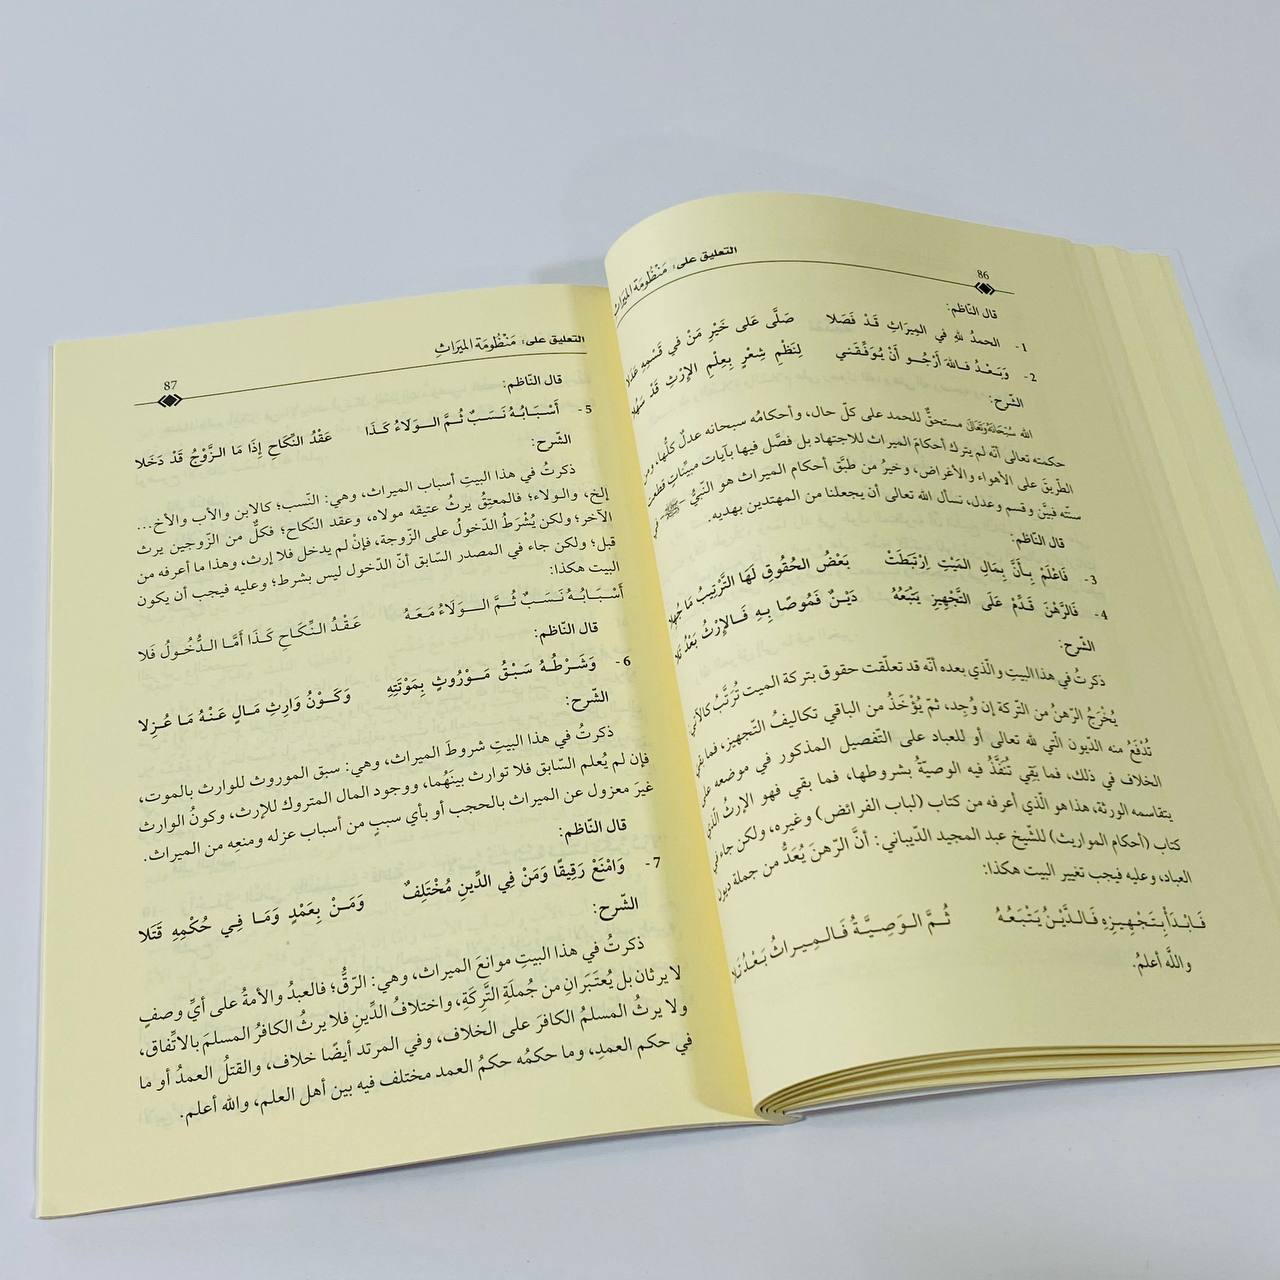 86
التعليق على: مَنْظُومَة الميَراثِ
قال النّاظم:
1- الحمدُ للهِ في المِيرَاثِ قَدْ فَصَلا صَلَّى عَلَى خَيْرِ مَنْ في قَسْمِهِ عَدَلا
2- وَبَـعْـدُ فـاللهَ أَرْجُـو أَنْ يُوَفِّقَني لِنَظْمِ شِعْرٍ بِعِلْمِ الإرْثِ قَدْ سَهُلا
الشّرح:
الله سُبْحَانَهُ وَتَعَالَى مستحقٌّ للحمد على كلّ حال، وأحكامُه سبحانه عدلٌ كلُّها، ومن
حكمته تعالى أنّه لم يترك أحكامَ الميراث للاجتهاد بل فصَّل فيها بآيات مبيِّناتٍ قطعت
الطّريقَ على الأهواء والأغراض، وخيرُ من طبَّق أحكام الميراث هو النّبيُّ -ﷺ- في
سنّته فبيَّن وقسم وعدل، نسأل الله تعالى أن يجعلنا من المهتدين بهديه.
قال النّاظم:
3- فَاعْلَمْ بِـأَنَّ بِمَالِ المَيْتِ اِرْتَبَطَتْ بَعْضُ الحُقُوقِ لَهَا التَّرْتِيبُ مَا جُهِلا
4- فَالرَّهْنَ قَدِّمْ عَلَى التَّجْهِيزِ يَتْبَعُهُ دَيْـنٌ فَمُوصًا بِـهِ فَـالإرْثُ بَعْدُ تَلا
الشّرح:
ذكرتُ في هذا البيتِ والّذي بعده أنّه قد تعلّقت حقوق بتركة الميت تُرَتَّبُ كالآتي
يُخْرَجُ الرّهنُ من التّركة إن وُجِد، ثمّ يُؤْخَذُ من الباقي تكاليفُ التّجهيز، فما بقي
تُدْفَعُ منه الديون الّتي لله تعالى أو للعباد على التّفصيل المذكور في موضعه على
الخلاف في ذلك، فما بَقِيَ تُنَفَّذُ فيه الوصيّة بشروطها، فما بقي فهو الإرثُ الّذي
يتقاسمه الورثة، هذا هو الّذي أعرفه من كتاب (لباب الفرائض) وغيره، ولكن جاء في
كتاب (أحكام المواريث) للشّيخ عبد المجيد الذّيباني: أنَّ الرّهنَ يُعَدُّ من جملة ديون
العباد، وعليه فيجب تغيير البيت هكذا:
فَابْدَأْ بِتَجْهِيزِهِ فَالدَّيْنُ يَتْبَعُهُ ثُـمَّ الـوَصِيَّةُ فَالـمِيـراثُ بَـعْـدُ تَلا
واللَّه أعلمُ.
87
التعليق على: مَنْظُومَة الميَراثِ
قال النّاظم:
5- أَسْـبَابُـهُ نَـسَـبٌ ثُـمَّ الـوَلَاءُ كَـذَا عَقْدُ النِّكَاحِ إِذَا مَا الـزَّوْجُ قَدْ دَخَلا
الشّرح:
ذكرتُ في هذا البيتِ أسباب الميراث، وهي: النّسب؛ كالابن والأب والأخ...
إلخ، والـولاء؛ فالمعتِقُ يرثُ عتيقه مولاه، وعقد النّكاح؛ فكلٌّ من الزّوجين يرث
الآخر؛ ولكن يُشْرَطُ الدّخولُ على الزّوجة، فإنْ لم يدخل فلا إرث، وهذا ما أعرفه من
قبل؛ ولكن جاء في المصدر السّابق أنّ الدّخول ليس بشرط؛ وعليه فيجب أن يكون
البيت هكذا:
أَسْـبَـابُـهُ نَـسَـبٌ ثُـمَّ الـوَلَاءُ مَـعَـهُ عَـقْـدُ الـنِّـكَاحِ كَـذَا أَمَّـا الـدُّخُولُ فَلا
قال النّاظم:
6- وَشَرْطُـهُ سَبْقُ مَـوْرُوثٍ بِمَوْتَتِهِ وَكَـوْنُ وَارِثِ مَـالٍ عَنْهُ مَا عُـزِلا
الشّرح:
ذكرتُ في هذا البيتِ شروطَ الميراث، وهي: سبق الموروث للوارث بالموت،
فإن لم يُعلم السّابق فلا توارث بينَهُما، ووجود المال المتروك للإرث، وكونُ الوارث
غيرَ معزول عن الميراث بالحجب أو بأي سببٍ من أسباب عزله ومنعِه من الميراث.
قال النّاظم:
7- وَامْنَعْ رَقِيقًا وَمَنْ فِي الدِّينِ مُخْتَلِفٌ وَمَـنْ بِعَمْدٍ وَمَـا فِـي حُكْمِهِ قَتَلا
الشّرح:
ذكرتُ في هذا البيتِ موانعَ الميراث، وهي: الرّقُّ؛ فالعبدُ والأمةُ على أيِّ وصفٍ
لا يرثان بل يُعتَبَرانِ من جُملَةِ التَّرِكَةِ، واختلافُ الدِّينِ فلا يرثُ الكافرُ المسلمَ بالاتِّفاق،
ولا يرثُ المسلمُ الكافرَ على الخلاف، وفي المرتد أيضًا خلاف، والقتلُ العمدُ أو ما
في حكم العمدِ، وما حكمُه حكمُ العمد مختلف فيه بين أهل العلم، والله أعلم.